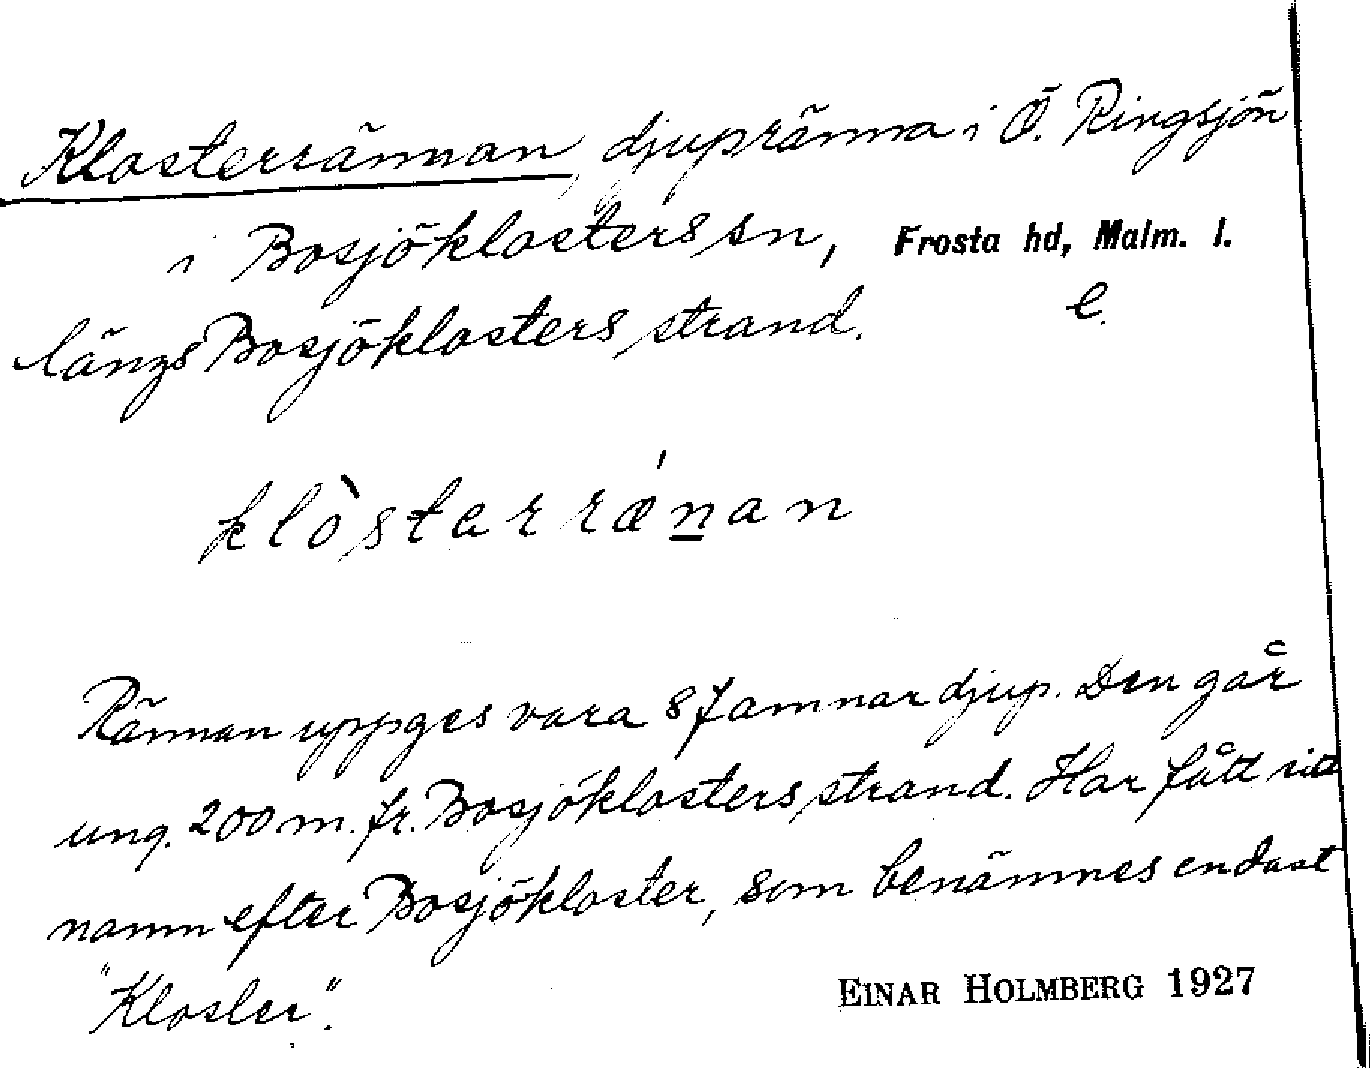 Klosterrännan, djupränna i Ö. Ringsjön
i Bosjöklosters sn, Frosta hd, Malm. l.
längs Bosjöklosters strand. e.
klòstarrǽn̲an
Rännan uppges vara 8 famnar djup. Den går
ung. 200 m. fr. Bosjöklosters strand. Har fått sitt
namn efter Bosjökloster, som benämnes endast
"Kloster".
EINAR HOLMBERG 1927